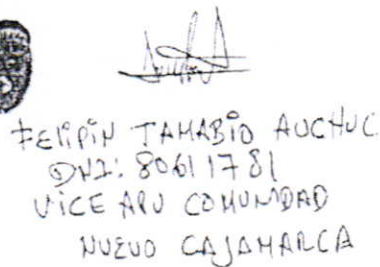 FELIPIN TAMABIO AUCHUC
DNI: 80611781
VICE APU COMUNIDAD
NUEVO CAJAMARCA